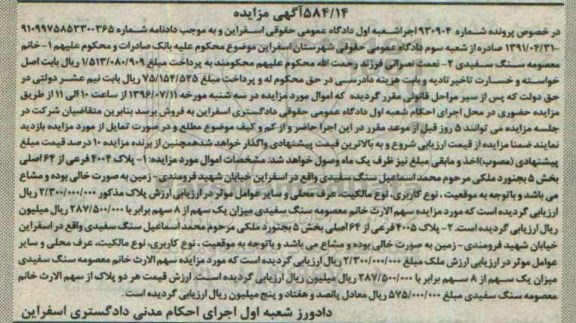 ۵۸۴/۱۴آگهی مزایده
در خصوص پرونده شماره ۹۳۰۹۰۴ اجرا شعبه اول دادگاه عمومی حقوقی اسفراین و به موجب دادنامه شماره ۹۱۰۹۹۷۵۸۵۳۳۰۰۳۶۵
-۱۳۹۱/۰۴/۳۱ صادره از شعبه سوم دادگاه عمومی حقوقی شهرستان اسفراین موضوع محکوم علیه بانک صادرات و محکوم علیهم ۱- خانم
معصومه سنگ سفیدی ۲- نعمت نصرالی فرزند رحمت الله محکوم علیهم محکومند به پرداخت مبلغ ۱/۵۱۳/۰۸۰/۹۰۹ ریال بابت اصل
خواسته و خسارت تاخیر تادیه و بابت هزینه دادرسی در حق محکوم له و پرداخت مبلغ ۷۵/۱۵۴/۵۴۵ ریال بابت نیم عشر دولتی در
حق دولت که پس از سیر مراحل قانونی مقرر گردیده که اموال مورد مزایده در سه شنبه مورخه ۱۳۹۶/۰۷/۱۱ از ساعت ۱۰ الی ۱۱ از طریق
مزایده حضوری در محل اجرای احکام شعبه اول دادگاه عمومی حقوقی دادگستری اسفراین به فروش برسد بنابرین متقاضیان شرکت در
جلسه مزایده می توانند ۵ روز قبل از موعد مقرر در این اجرا حاضر و از کم و کیف موضوع مطلع و در صورت تمایل از مورد مزایده بازدید
نمایند ضمنا مزایده از قیمت ارزیابی شروع و به بالاترین قیمت پیشنهادی واگذار خواهد شد همچنین از برنده مزایده ۱۰ درصد قیمت مبلغ
پیشنهادی (مصوب) اخذ و مابقی مبلغ نیز ظرف یک ماه وصول خواهد شد. مشخصات اموال مورد مزایده: ۱- پلاک ۴۰۰۴ فرعی از ۶۴ اصلی
بخش ۵ بجنورد ملکی مرحوم محمد اسماعیل سنگ سفیدی واقع در اسفراین خیابان شهید فرومندی - زمین به صورت خالی بوده و مشاع
می باشد و باتوجه به موقعیت ، نوع کاربری، نوع مالکیت، عرف محلی و سایر عوامل موثر در ارزیابی ارزش پلاک مذکور ۲/۳۰۰/۰۰۰/۰۰۰ ریال
ارزیابی گردیده است که مورد مزایده سهم الارث خانم معصومه سنگ سفیدی میزان یک سهم از ۸ سهم برابر با ۲۸۷/۵۰۰/۰۰۰ ریال میلیون
ریال ارزیابی گردیده است. ۲- پلاک ۴۰۰۵ فرعی از ۶۴ اصلی بخش ۵ بجنورد ملکی مرحوم محمد اسماعیل سنگ سفیدی واقع در اسفراین
خیابان شهید فرومندی - زمین به صورت خالی بوده و مشاع می باشد و باتوجه به موقعیت ، نوع کاربری، نوع مالکیت، عرف محلی و سایر
عوامل موثر در ارزیابی ارزش ملک مبلغ ۲/۳۰۰/۰۰۰/۰۰۰ ریال ارزیابی گردیده است که مورد مزایده سهم الارث خانم معصومه سنگ سفیدی
میزان یک سهم از ۸ سهم برابر با ۲۸۷/۵۰۰/۰۰۰ ریال ارزیابی گردیده است. ارزش قیمت هر دو پلاک از سهم الارث خانم
معصومه سنگ سفیدی مبلغ ۵۷۵/۰۰۰/۰۰۰ ریال معادل پانصد و هفتاد و پنج میلیون ریال ارزیابی گردیده است.
دادورز شعبه اول اجرای احکام مدنی دادگستری اسفراین